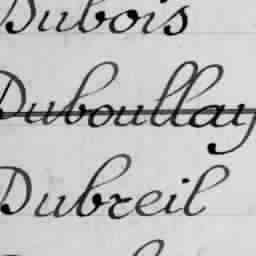 Dubois
Duboullay
Dubreil